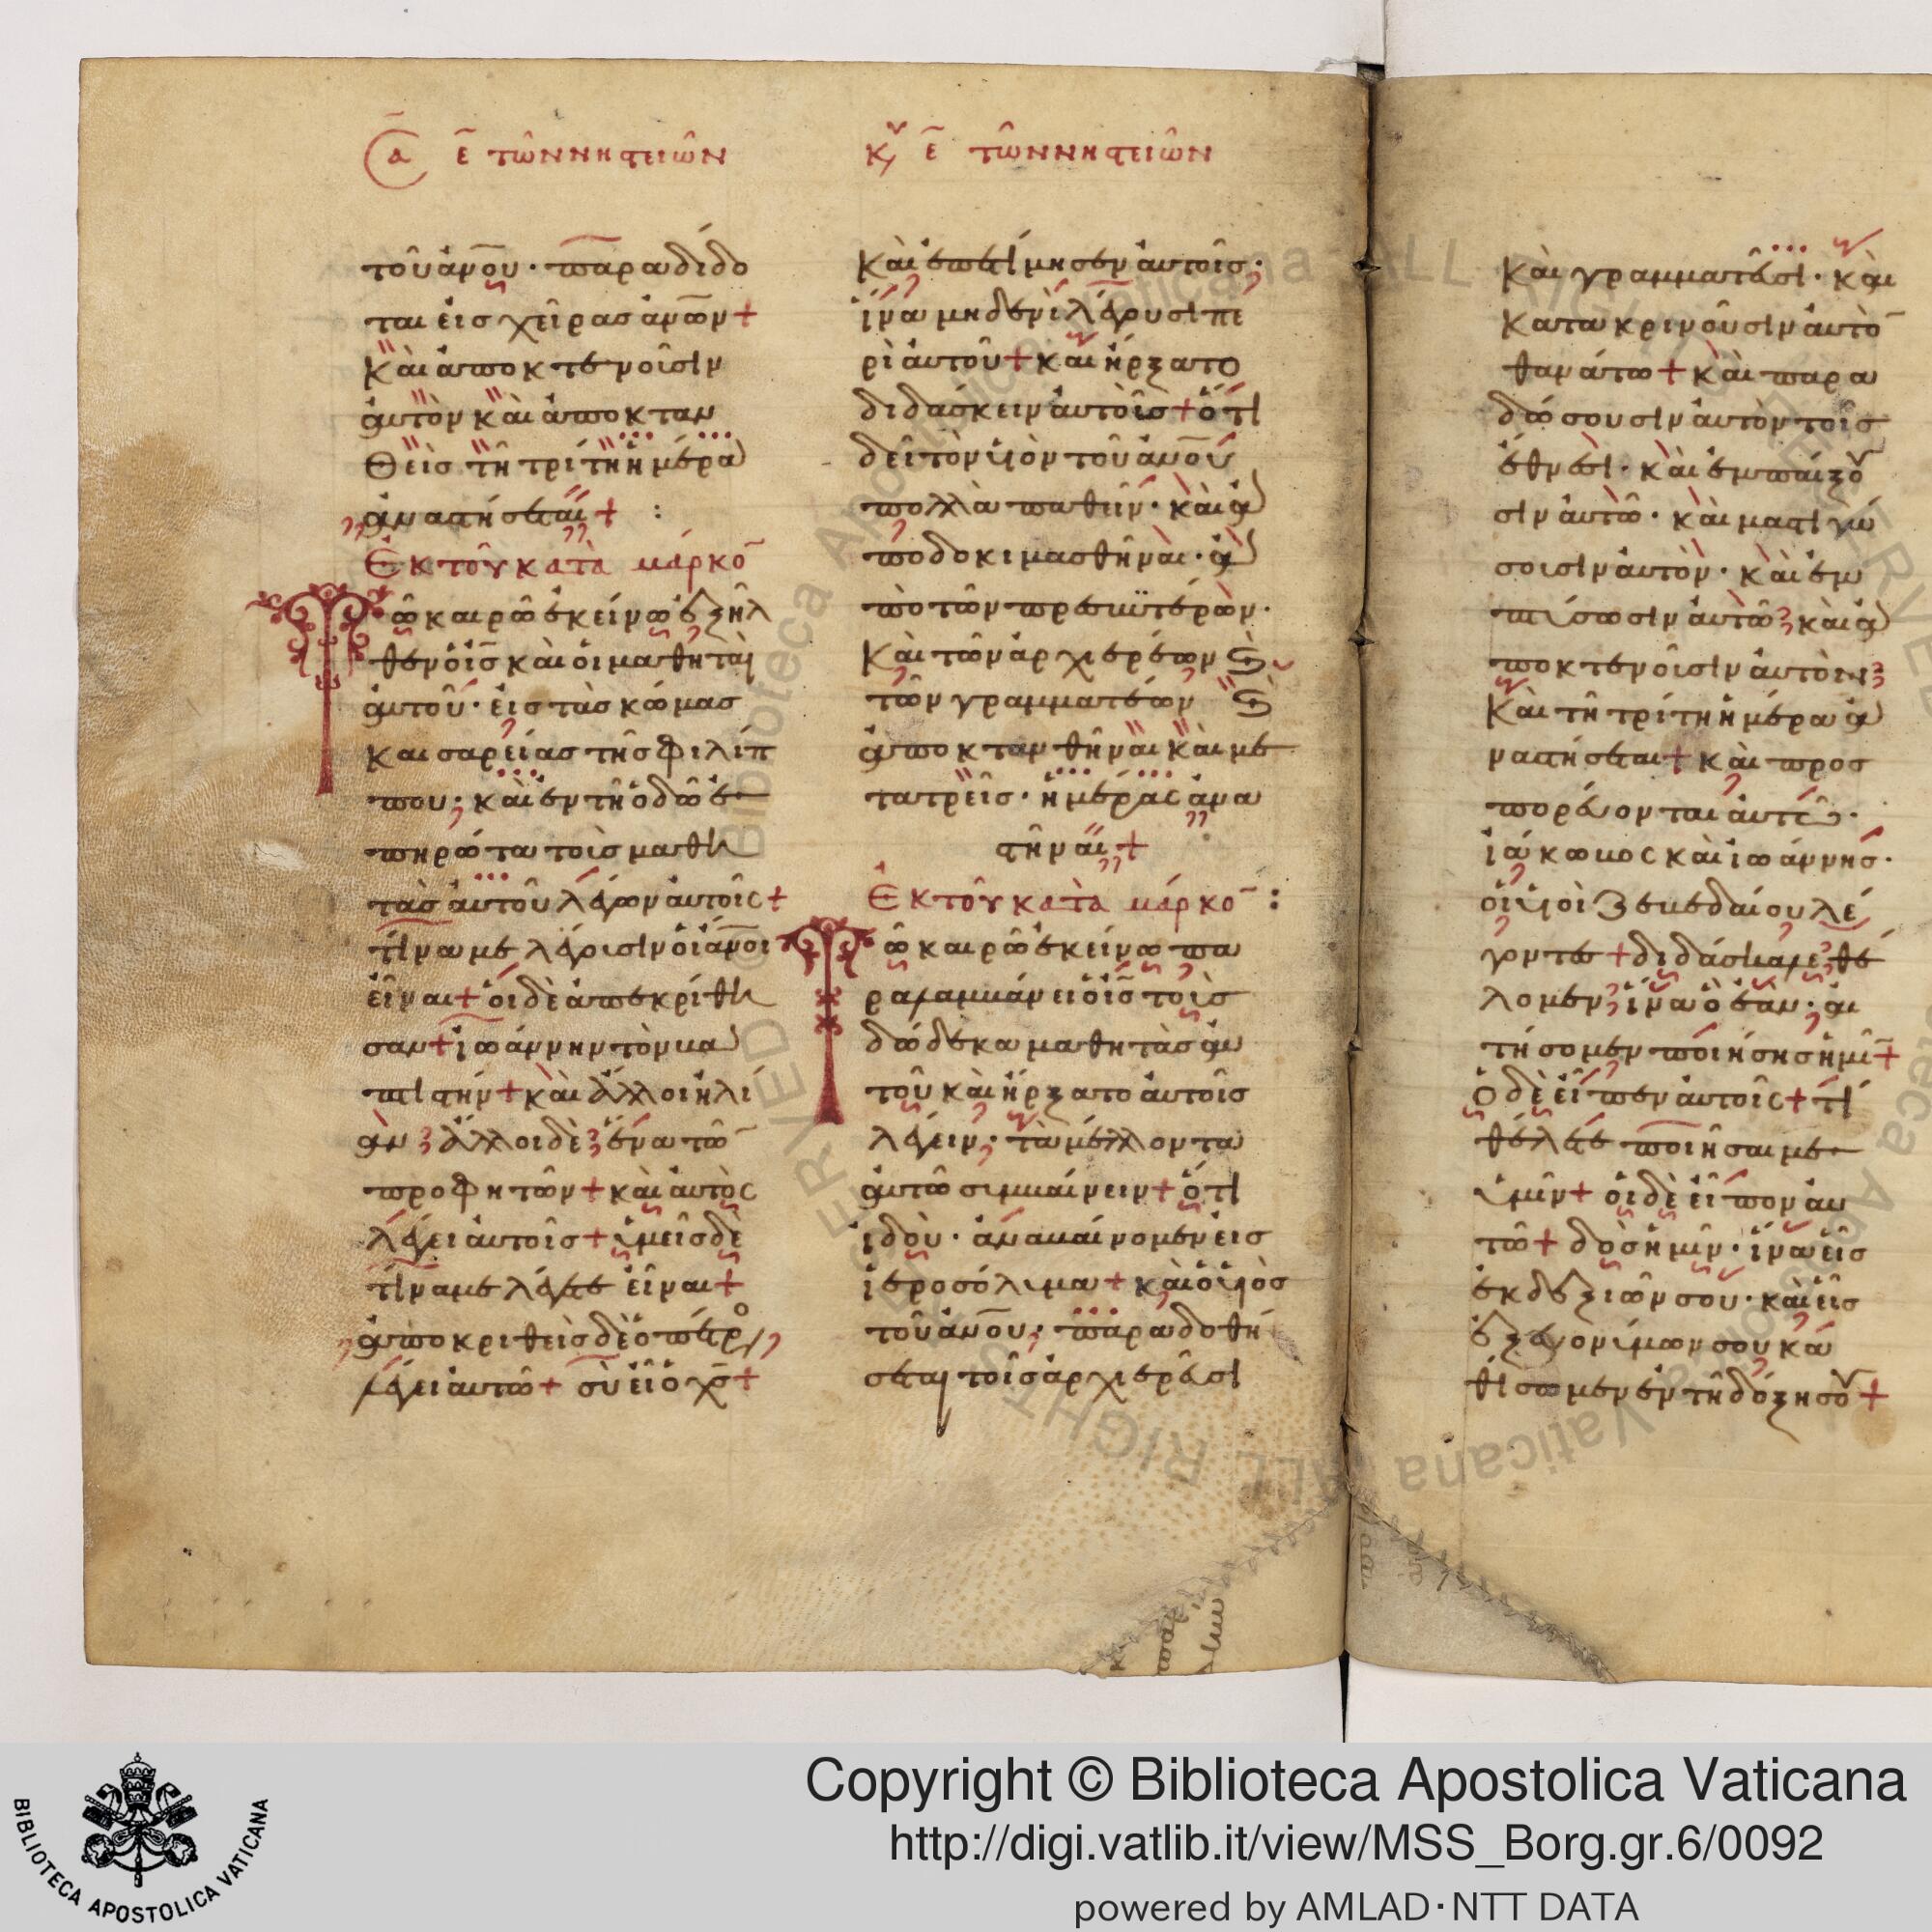 Σα ε τῶν νηστειῶν
τοῦ ἀνου· παραδίδο
ται εἰσ χεῖρασ ἀνων+
καὶ ἀποκτενοῦσιν
ἀυτὸν καὶ ἀποκταν
θεὶσ τῆ τρίτη ἡμέρα
ἀναστήσεται+ :
Ἐκ τοῦ κατὰ μάρκο
Τῶ καιρῶ ἐκείνω ἐξῆλ
θεν ὁ ἰσ καὶ οἱ μαθηταὶ
ἀυτοῦ· εἰσ τὰσ κώμασ
καισαρείασ τῆσ φιλίπ
που· καὶ ἐν τῆ ὁδῶ ἐ
πηρώτα τοὺσ μαθη
τὰσ ἀυτοῦ λέγων ἀυτοῖσ+
τίνα με λέγουσιν οἱ ἄνοι
εἶναι+ οἱ δὲ ἀπεκρίθη
σαν+ ἰωάννην τὸν βα
πτιστήν+ καὶ ἄλλοι ἠλί
αν ἄλλοι δὲ ἕνα τῶ
προφητῶν+ καὶ ἀυτὸσ
λέγει ἀυτοῖσ+ ὑμεῖσ δὲ
τίνα με λέγετε εἶναι+
ἀποκριθεὶσ δὲ ὁ πέτρο
λέγει ἀυτῶ+ σὺ εἶ ὁ χσ+
κυ ε τῶν νηστειῶν
καὶ ἐπετίμησεν ἀυτοῖσ·
ἵνα μηδενὶ λέγουσι πε
ρὶ ἀυτοῦ+ καὶ ἤρξατο
διδάσκειν ἀυτοὺσ+ ὅτι
δεῖ τὸν υἱὸν τοῦ ἀνου
πολλὰ παθεῖν· καὶ ἀ
ποδοκιμασθῆναι· ἀ
πὸ τῶν πρεσβυτέρων·
καὶ τῶν ἀρχιερέων ϗ
τῶν γραμματέων ϗ
ἀποκτανθῆναι καὶ με
τὰ τρεῖσ· ἡμέρασ ἀνα
στῆναι+
Ἐκ τοῦ κατὰ μάρκο :
Τῶ καιρῶ ἐκείνω πα
ραλαμβάνει ὁ ἰσ τοὺσ
δώδεκα μαθητὰσ ἀυ
τοῦ καὶ ἤρξατο ἀυτοῖσ
λέγειν· τὰ μέλλοντα
ἀυτῶ συμβαίνειν+ ὅτι
ἰδοὺ· ἀναβαίνομεν εἰσ
ἱεροσόλυμα+ καὶ ὁ υἱὸσ
τοῦ ἀνου· παραδοθή
σεται τοῖσ ἀρχιερεῦσι
καὶ γραμματεῦσι· καὶ
κατακρινοῦσιν ἀυτὸ
θανάτω+ καὶ παρα
δώσουσιν ἀυτὸν τοῖσ
ἔθνεσι· καὶ ἐμπαίξου
σιν ἀυτῶ· καὶ μαστιγώ
σουσιν ἀυτὸν· καὶ ἐμ
πτύσωσιν ἀυτῶ καὶ ἀ
ποκτενοῦσιν ἀυτὸν
καὶ τῆ τρίτη ἡμέρα ἀ
ναστήσεται+ καὶ προσ
πορεύονται ἀυτῶ·
ἰάκωβοσ καὶ ἰωάννησ·
οἱ υἱοὶ ζεβεδαίου λέ
γοντεσ+ διδάσκαλε θέ
λομεν ἵνα ὃ ἐὰν· αἰ
τήσομεν ποιήσησ ἡμῖ+
ὁ δὲ εἶπεν ἀυτοῖσ+ τί
θέλετε ποιῆσαι με
ὑμῖν+ οἱ δὲ εἶπον ἀυ
τῶ+ δὸσ ἡμῖν· ἵνα εἷσ
ἐκ δεξιῶν σου· καὶ εἷσ
ἐξ ευονύμων σου κα
θίσωμεν ἐν τῆ δόξη σου+
BIBLIOTECA APOSTOLICA VATICANA
Copyright © Biblioteca Apostolica Vaticana
http://digi.vatlib.it/view/MSS_Borg.gr.6/0092
powered by AMLAD·NTT DATA